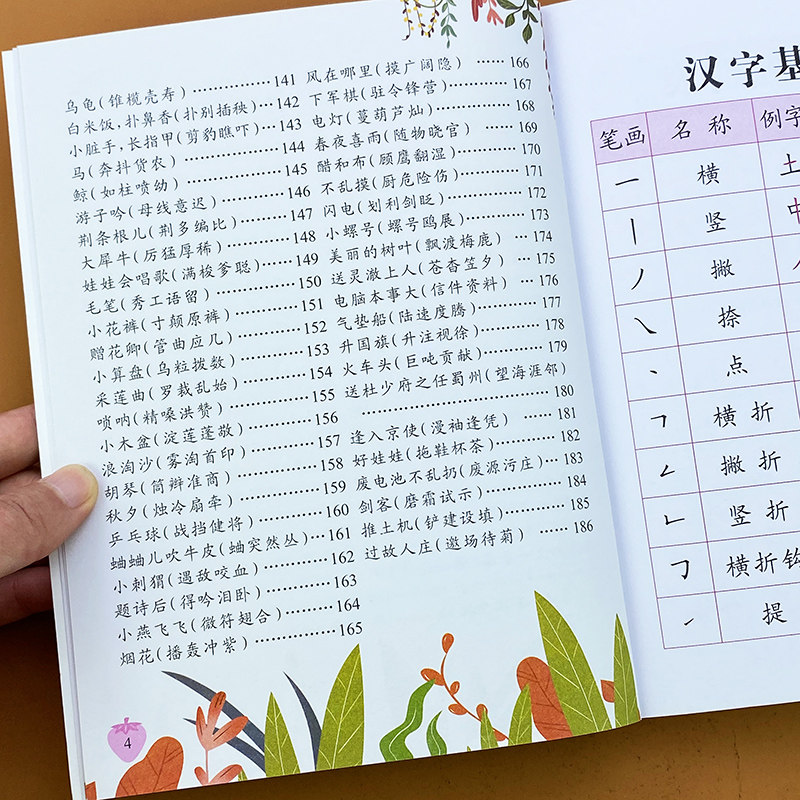 乌龟(锥榄壳寿)……………141
白米饭,扑鼻香(扑别插秧)…142
小脏手,长指甲(剪豹瞧吓)…143
马(奔抖货农)………………144
鲸(如柱喷幼)………………145
游子吟(母线意迟)…………146
荆条根儿(荆多编比)………147
大犀牛(厉猛厚稀)…………148
娃娃会唱歌(满梭爹聪)……149
毛笔(秀工语留)……………150
小花裤(寸颠原裤)…………151
赠花卿(管曲应几)…………152
小算盘(乌粒拨数)…………153
采莲曲(罗裁乱始)…………154
唢呐(精嗓洪赞)……………155
小木盆(淀莲蓬敬)…………156
浪淘沙(雾淘首印)…………157
胡琴(筒辩准商)……………158
秋夕(烛冷扇牵)……………159
乒乓球(战挡健将)…………160
蛐蛐儿吹牛皮(蛐突然丛)…161
小刺猬(遇敌咬血)…………162
题诗后(得吟泪卧)…………163
小燕飞飞(微符翅合)………164
烟花(播轰冲紫)……………165
风在哪里(摸广阔隐)……166
下军棋(驻令锋营)…………167
电灯(蔓葫芦灿)……………168
春夜喜雨(随物晓官)……169
醋和布(顾鹰翻湿)…………170
不乱摸(厨危险伤)…………171
闪电(划利剑眨)……………172
小螺号(螺号鸥展)…………173
美丽的树叶(飘渡梅鹿)…174
送灵澈上人(苍杳笠夕)…175
电脑本事大(信件资料)…176
气垫船(陆速度腾)…………177
升国旗(升注视徐)…………178
火车头(巨吨贡献)…………179
送杜少府之任蜀州(望海涯邻)
……………………………180
逢入京使(漫袖逢凭)……181
好娃娃(拖鞋杯茶)…………182
废电池不乱扔(废源污庄)…183
剑客(磨霜试示)……………184
推土机(铲建设填)…………185
过故人庄(邀场待菊)……186
4
汉字基
笔画 名称 例字
一 横 土
丨 竖
丿 撇
㇏ 捺
丶 点
㇕ 横折
㇜ 撇折
㇗ 竖折
㇆ 横折钩
㇀ 提